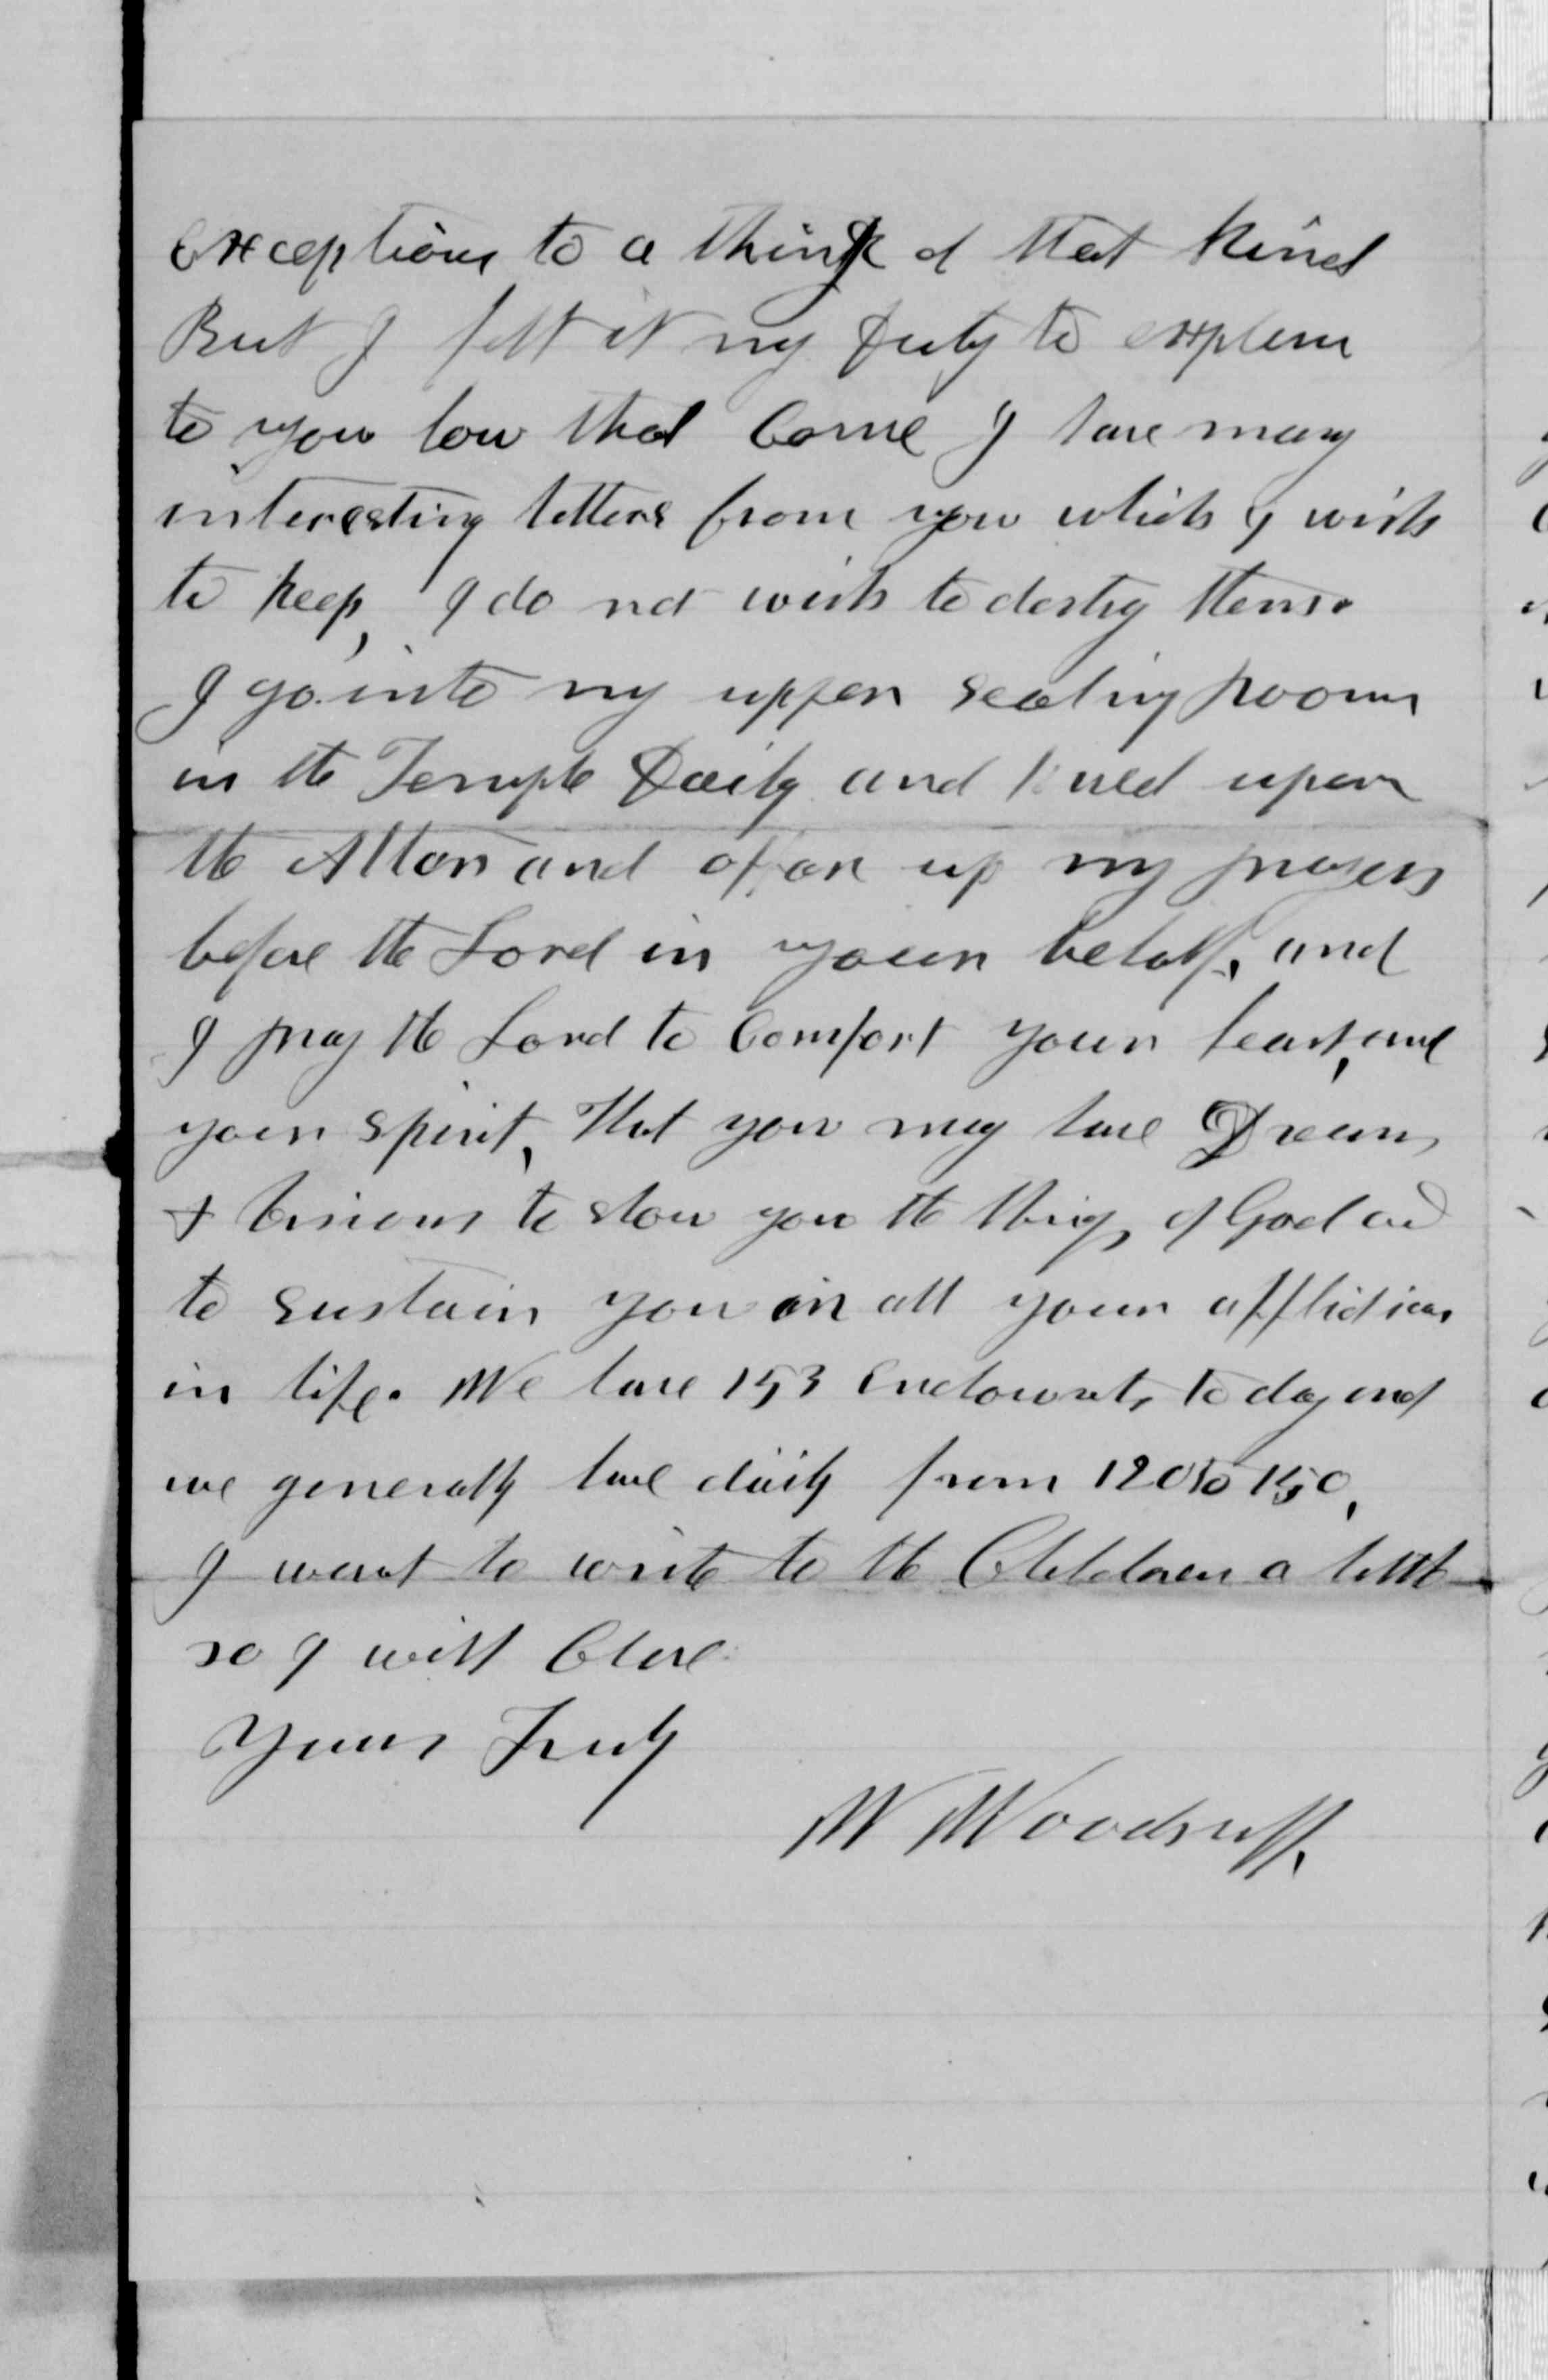 exceptions to a think of that kind
But I felt it my Duty to explain
to you how that Came I have many
interesting letters from you which I wish
to keep, I do not wish to destroy them.
I go into my upper sealing room
in the Temple Daily and kneel upon
the Altar and offer up my prayers
before the Lord in your behalf, and
I pray the Lord to Comfort your heart, and
your spirit, That you may have Dreams
& visions to show you the things of God and
to sustain you in all your afflictions
in life. We have 153 Endowmts to day and
we generally have daily from 120 to 150,
I want to write to the Children a little
so I will Close
Yours Truly
W Woodruff.